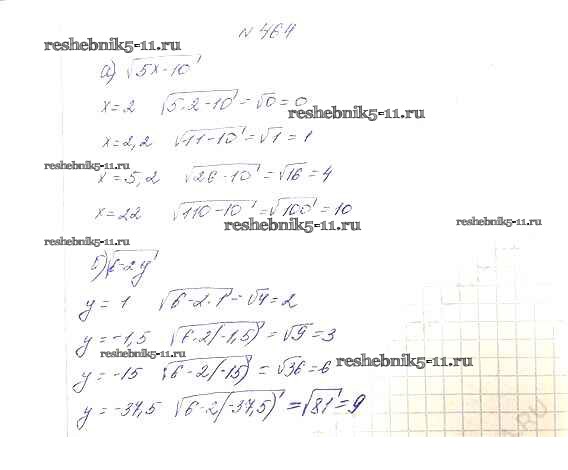 № 464
reshebnik5-11.ru
а) √5x-10
x=2 √5·2-10=√0=0
reshebnik5-11.ru
x=2,2 √11-10=√1=1
reshebnik5-11.ru
x=5,2 √26-10=√16=4
x=22 √110-10=√100=10
reshebnik5-11.ru
reshebnik5-11.ru
reshebnik5-11.ru
б) √6-2y
y=1 √6-2·1=√4=2
y=-1,5 √6-2(-1,5)=√9=3
reshebnik5-11.ru
reshebnik5-11.ru
y=-15 √6-2(-15)=√36=6
y=-37,5 √6-2(-37,5)=√81=9